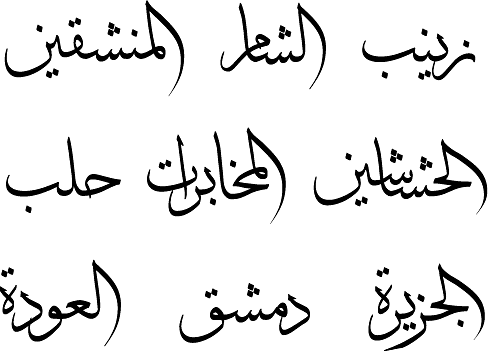 زينب الشام المنشقين
الحشاشين المخابرات حلب
الجزيرة دمشق العودة